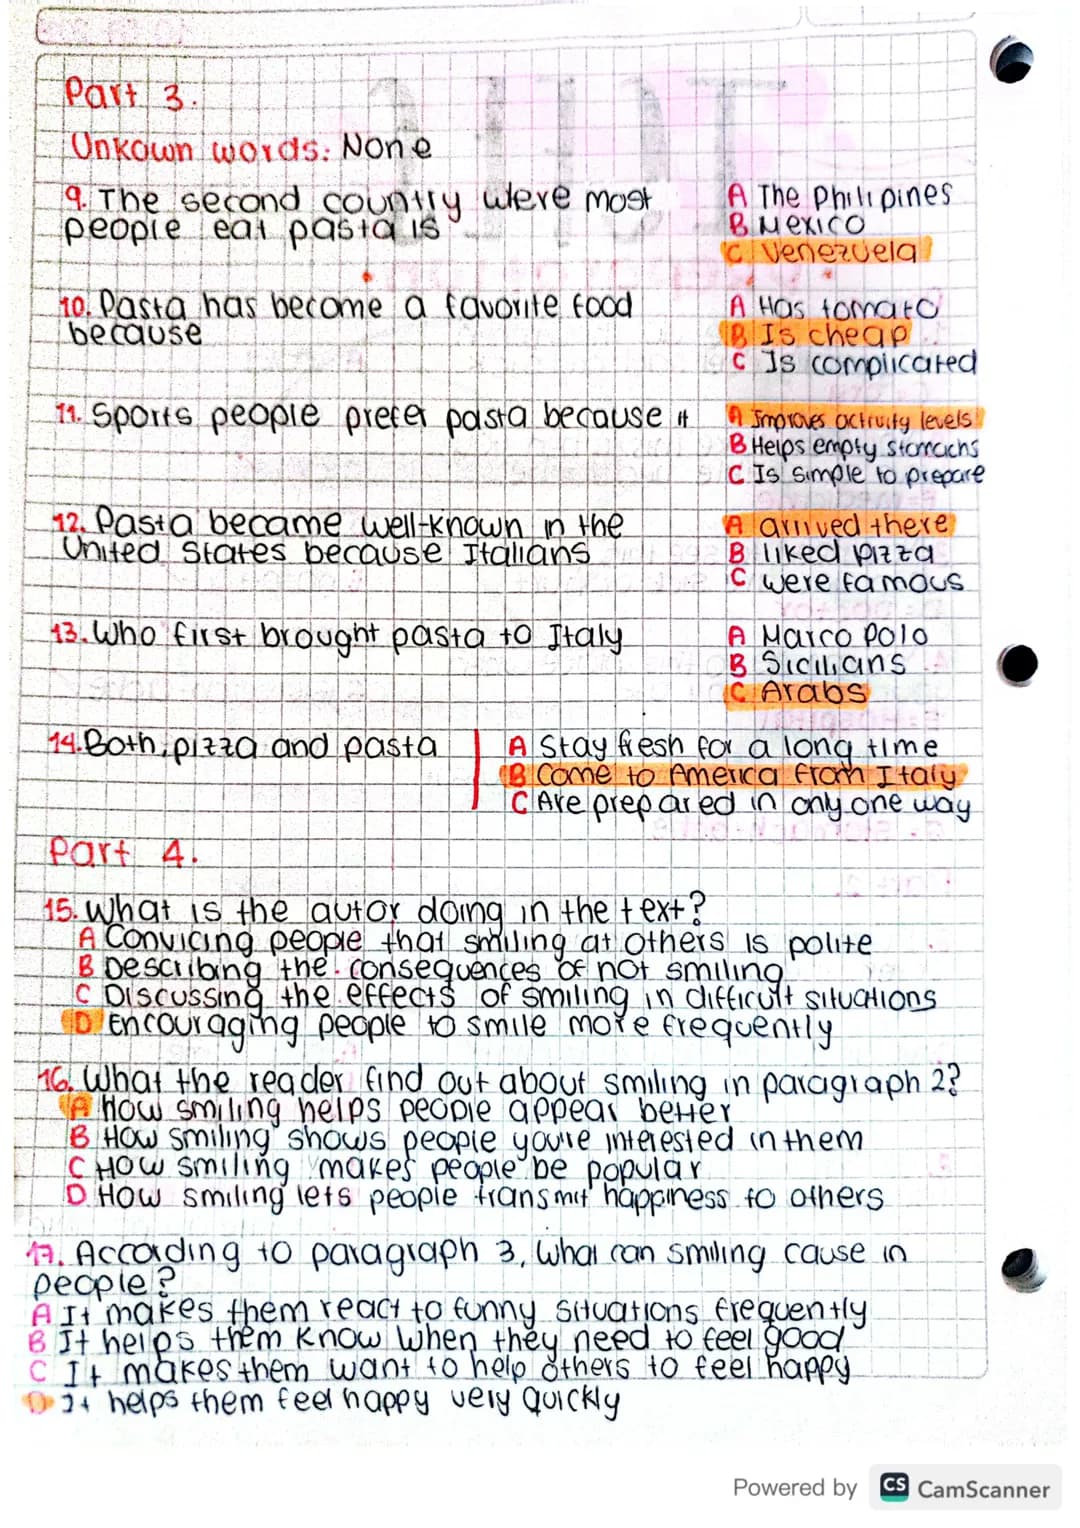 Part 3.
Unkown words: None
9. The second country were most
people eat pasta is
A The Philipines
B Mexico
C Venezuela
10. Pasta has become a favorite food
because
A Has tomato
B Is cheap
C Is complicated
11. Sports people prefer pasta because it
A Improves activity levels
B Helps empty stomachs
C Is simple to prepare
12. Pasta became well-known in the
United States because Italians
A arrived there
B liked pizza
C were famous
13. Who first brought pasta to Italy
A Marco Polo
B Sicilians
C Arabs
14. Both, pizza and pasta
A Stay fresh for a long time
B Come to America from Italy
C Are prepared in only one way
Part 4.
15. What is the autor doing in the text?
A Convicing people that smiling at others is polite
B Describing the consequences of not smiling
C Discussing the effects of smiling in difficult situations
D Encouraging people to smile more frequently
16. What the reader find out about smiling in paragraph 2?
A How smiling helps people appear better
B How smiling shows people you're interested in them
C How smiling makes people be popular
D How smiling lets people transmit happiness to others
17. According to paragraph 3, what can smiling cause in
people?
A It makes them react to funny situations frequently
B It helps them know when they need to feel good
C It makes them want to help others to feel happy
D It helps them feel happy very quickly
Powered by CS CamScanner